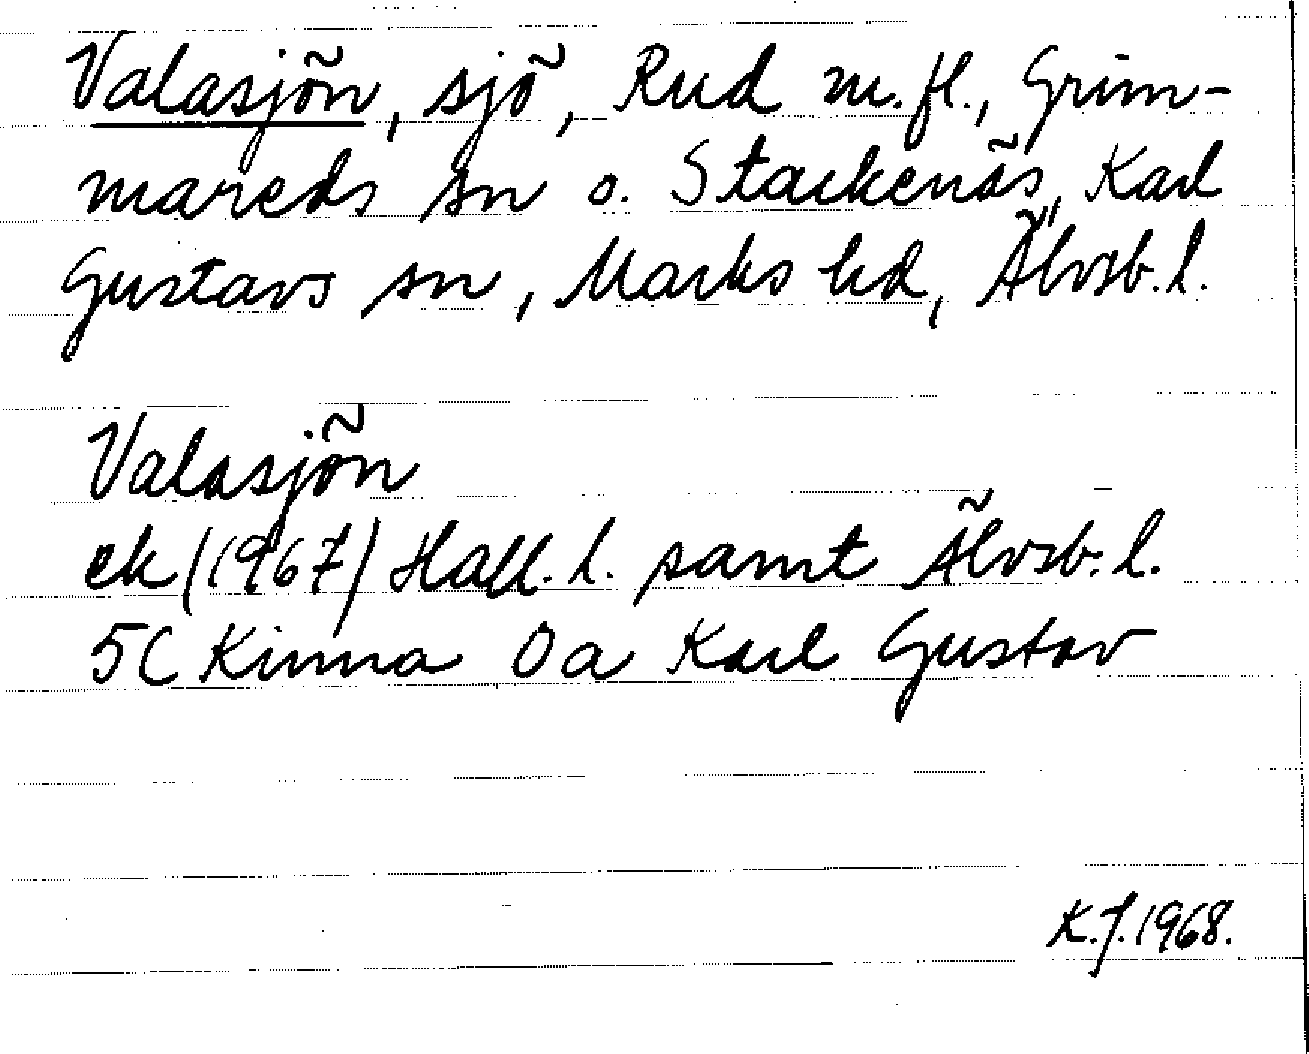 Valasjön, sjö, Rud m.fl., Grim-
mareds sn o. Stackenäs, Karl
Gustavs sn, Marks hd, Älvsb.l.
Valasjön
ek (1967) Hall. l. samt Älvsb. l.
5C Kinna 0a Karl Gustav
K.J. 1968.